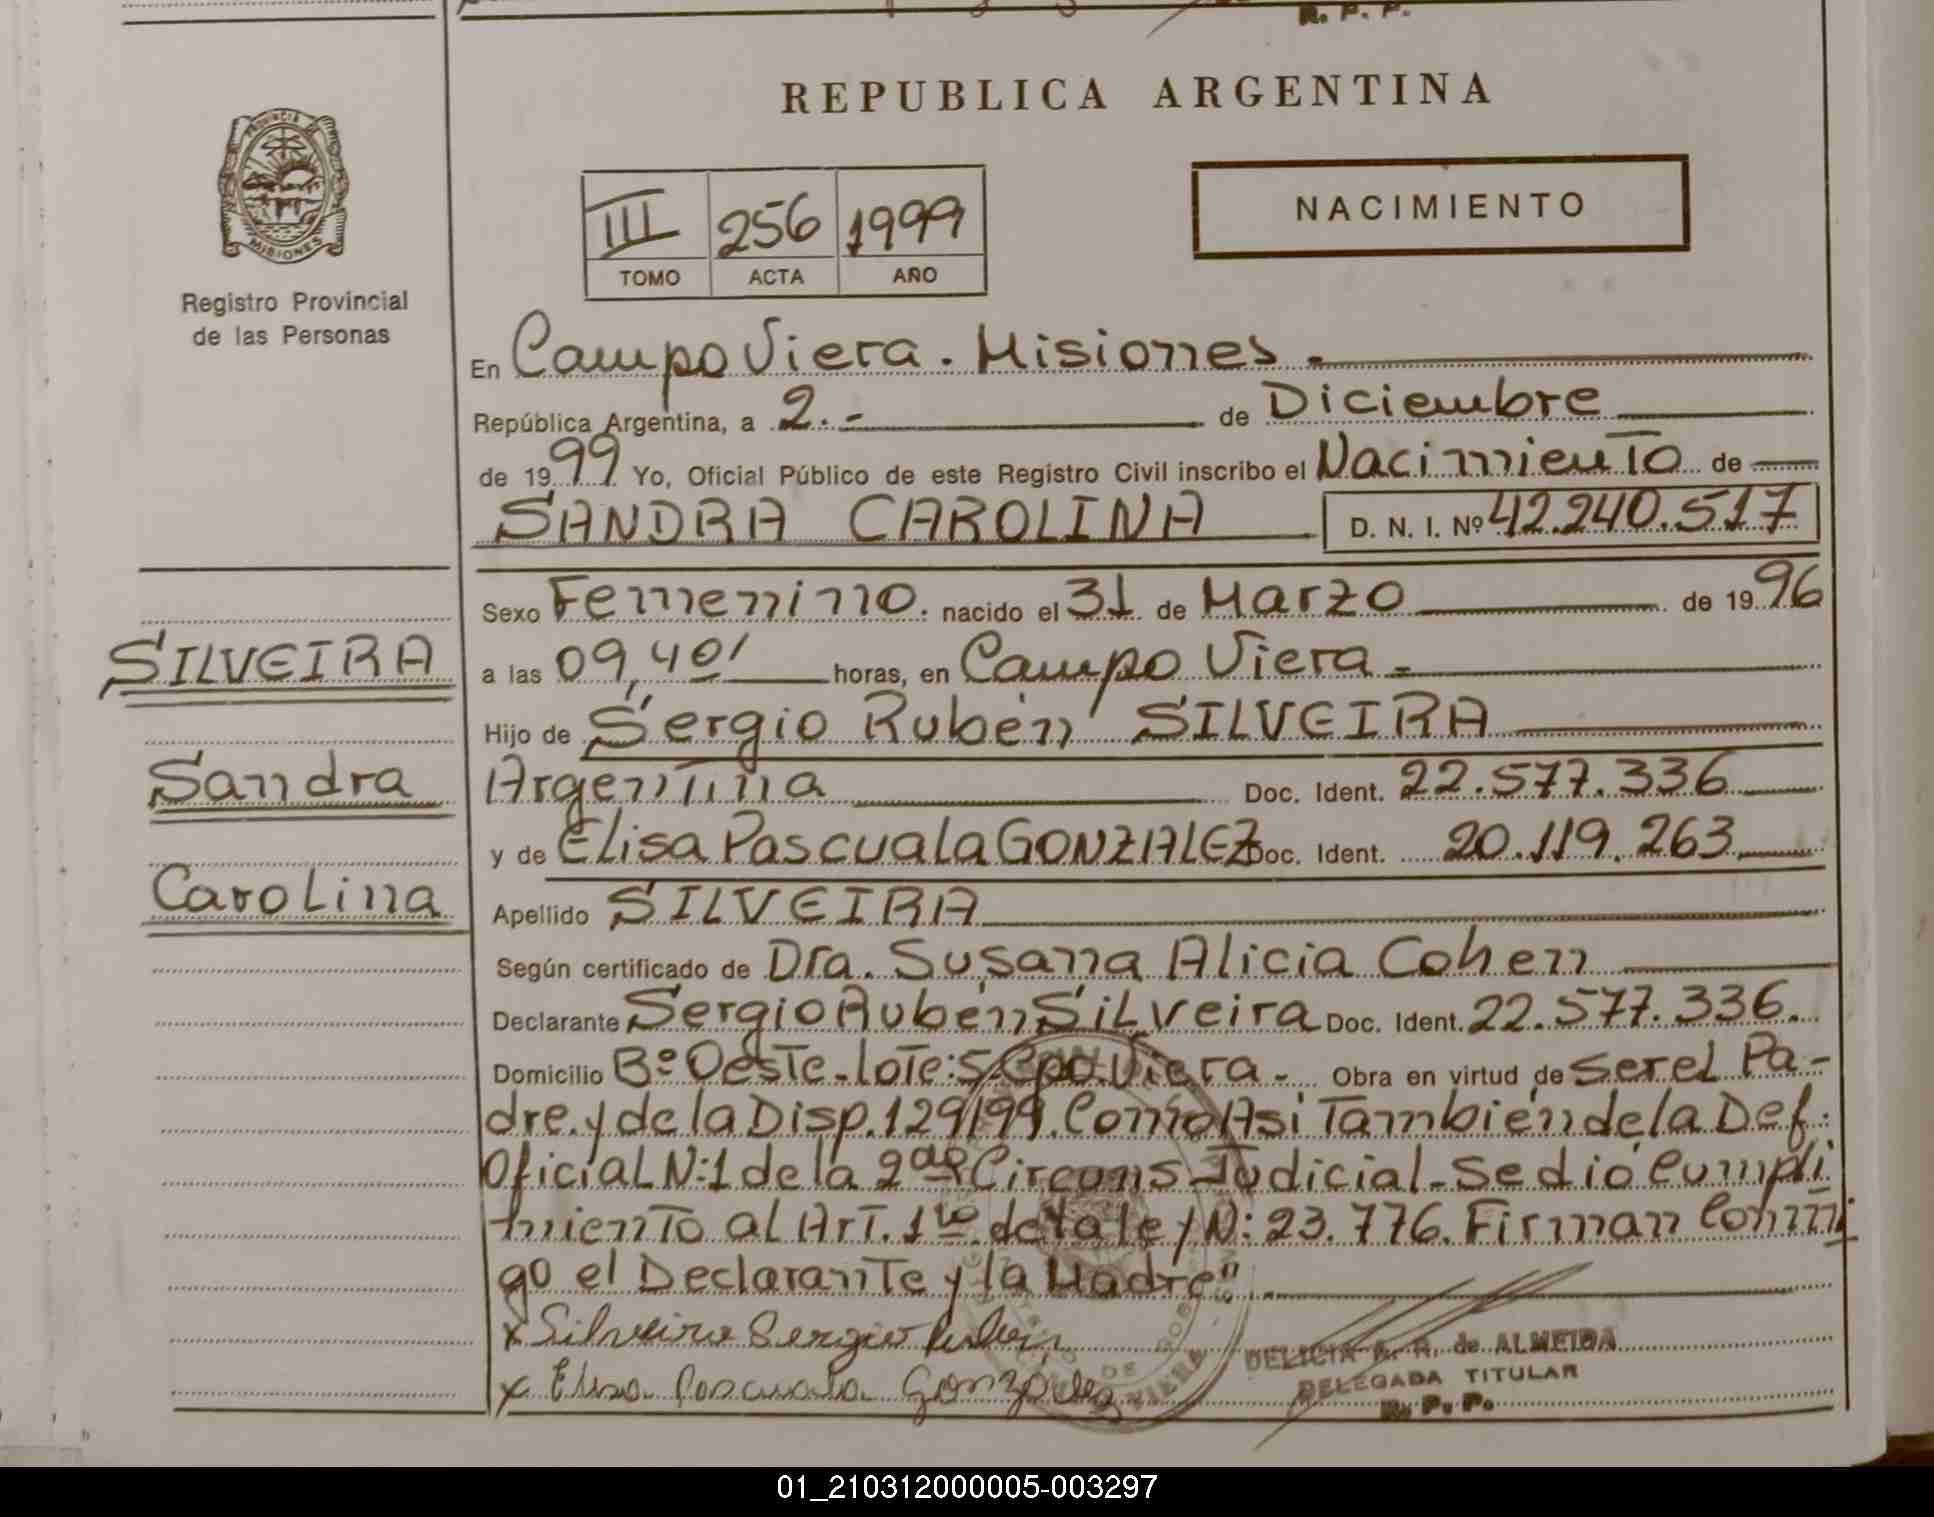 R. P. P.
REPUBLICA ARGENTINA
PROVINCIA DE
MISIONES
Registro Provincial
de las Personas
III 256 1999
TOMO ACTA AÑO
NACIMIENTO
En Campo Viera. Misiones.
República Argentina, a 2.- de Diciembre
de 1999 Yo, Oficial Público de este Registro Civil inscribo el Nacimiento de
SANDRA CAROLINA D. N. I. Nº 42.240.517
Sexo Femenino. nacido el 31 de Marzo de 1996
SILVEIRA
a las 09,40' horas, en Campo Viera.-
Hijo de Sergio Rubén SILVEIRA
Sandra
Argentina Doc. Ident. 22.577.336
y de Elisa Pascuala GONZALEZ Doc. Ident. 20.119.263
Carolina
Apellido SILVEIRA
Según certificado de Dra. Susana Alicia Cohen
Declarante Sergio Rubén Silveira Doc. Ident. 22.577.336.
Domicilio Bº Oeste-lote:5 Cpo. Viera.- Obra en virtud de ser el Pa-
dre. y de la Disp. 129/99. Como Asi También de la Def.
Oficial N:1 de la 2da Circuns Judicial-Se dió Cumpli
miento al Art. 1ro de la ley N: 23.776. Firman Conmi
go el Declarante y la Madre".
x Silveira Sergio Ruben
DELICIA A. R. de ALMEIDA
DELEGADA TITULAR
x Elisa Pascuala Gonzalez
R. P. P.
01_210312000005-003297